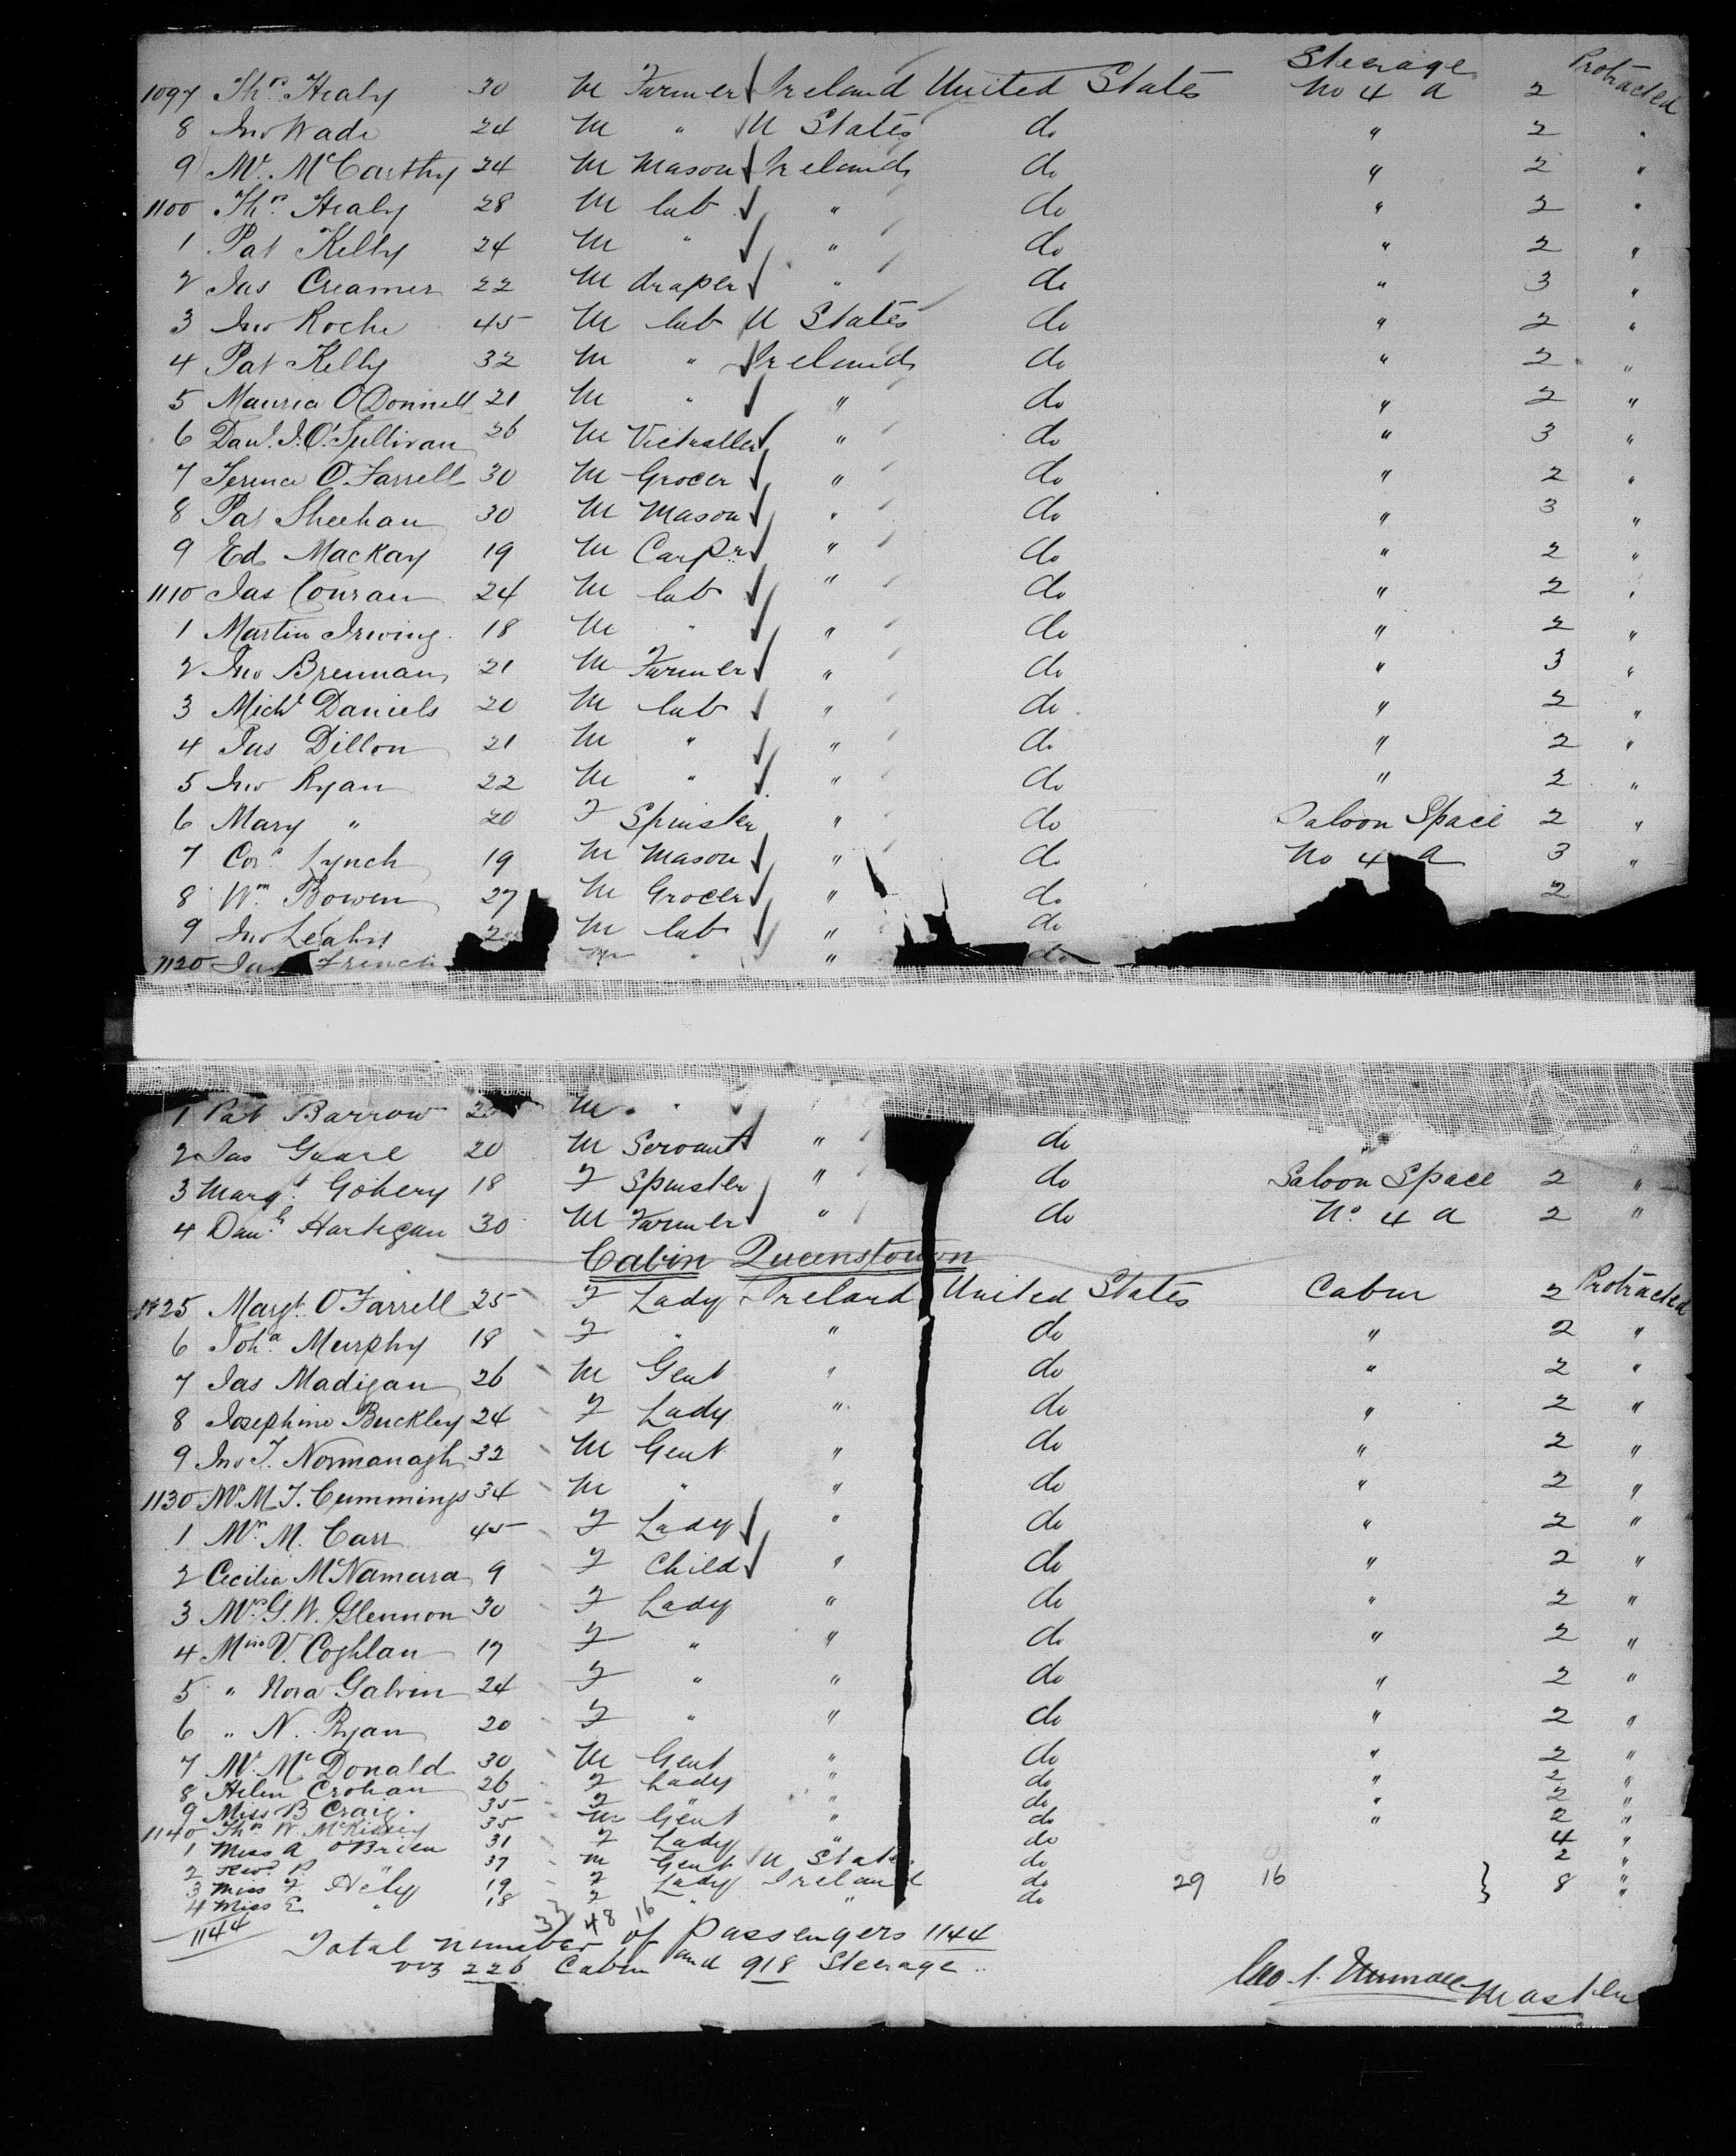 Steerage Protracted
1097 Thos Healy 30 M Farmer Ireland United States No 4 a 2
8 Jno Wade 24 M " U States do " 2 "
9 Mr. McCarthy 24 M Mason Ireland do " 2 "
1100 Thos Healy 28 M lab " do " 2 "
1 Pat Kelly 24 M " " do " 2 "
2 Jas Creamer 22 M draper " do " 3 "
3 Jno Roche 45 M lab U States do " 2 "
4 Pat Kelly 32 M " Ireland do " 2 "
5 Maurice O'Donnell 21 M " " do " 2 "
6 Danl. J. O'Sullivan 26 M Victualler " do " 3 "
7 Terence O'Farrell 30 M Grocer " do " 2 "
8 Pat Sheehan 30 M Mason " do " 3 "
9 Ed Mackay 19 M Carpr " do " 2 "
1110 Jas Couran 24 M lab " do " 2 "
1 Martin Irwing 18 M " " do " 2 "
2 Jno Brennan 21 M Farmer " do " 3 "
3 Michl Daniels 20 M lab " do " 2 "
4 Jas Dillon 21 M " " do " 2 "
5 Jno Ryan 22 M " " do " 2 "
6 Mary " 20 F Spinster " do Saloon Space 2 "
7 Cors Lynch 19 M Mason " do No 4 a 3 "
8 Wm Bowen 27 M Grocer " do 2
9 Jno Leahy M lab " do
1120 Jas French M " " do
1 Pat Barrow M "
2 Jas 20 M Servant " do "
3 Margt. Gohery 18 F Spinster " do Saloon Space 2 "
4 Danl. Hartigan 30 M Farmer " do No. 4 a 2 "
Cabin Queenstown
1125 Margt. O'Farrell 25 F Lady Ireland United States Cabin 2 Protracted
6 Joha Murphy 18 F " " do " 2 "
7 Jas Madigan 26 M Gent " do " 2 "
8 Josephine Buckley 24 F Lady " do " 2 "
9 Jno T. Normanagh 32 M Gent " do " 2 "
1130 Mr. M. J. Cummings 34 M " " do " 2 "
1 Mrs. M. Carr 45 F Lady " do " 2 "
2 Cecilia McNamara 9 F Child " do " 2 "
3 Mrs. G. W. Glennon 30 F Lady " do " 2 "
4 Miss V. Coghlan 17 F " " do " 2 "
5 " Nora Galvin 24 F " " do " 2 "
6 " N. Ryan 20 F " " do " 2 "
7 Mr. McDonald 30 M Gent " do " 2 "
8 Helen Crohan 26 F Lady " do " 2 "
9 Miss B Craig. 35 F " " do " 2 "
1140 Thos W. 35 M Gent " do 2 "
1 Miss A O'Brien 31 F Lady " do 4 "
2 Revd P. " 37 M Gent U States do 2 "
3 Miss F. Hely 19 F Lady Ireland do 29 16 } 8 "
4 Miss E " 18 F " " do "
1144 33 48 16
Total number of passengers 1144
viz 226 Cabin and 918 Steerage
Master